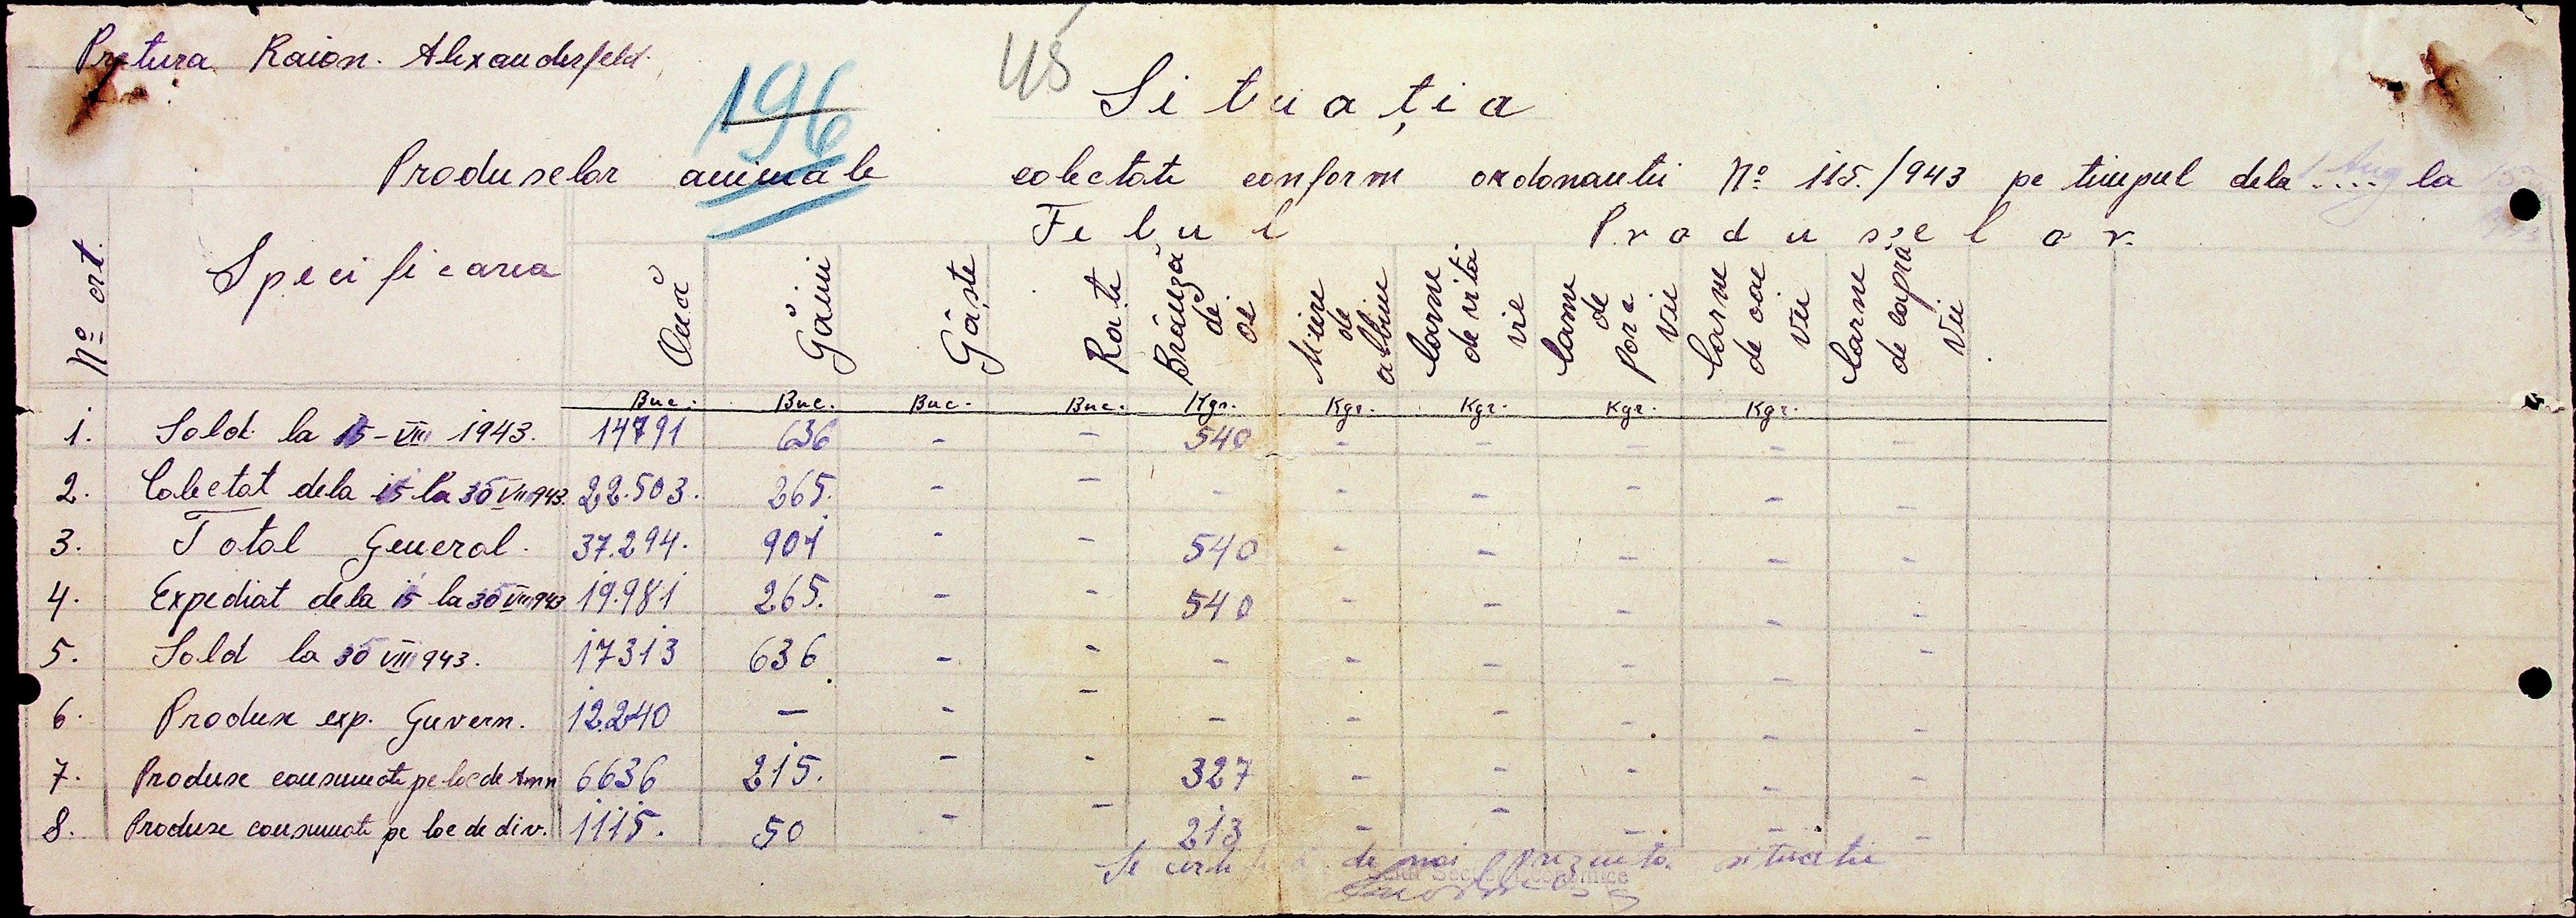 Pretura Raion. Alexanderfeld.
196
Situația
Produselor animale colectate conform ordonantii Nº 115./943 pe timpul dela .... la
Felul Produselor.
Nº crt. Specificarea Ouă Găini Gâște Rațe Brânză de oi Miere de albine Carne de vita vie Carne de porc viu Carne de oaie viu Carne de capră viu
Buc. Buc. Buc. Buc. Kgr. Kgr. Kgr. Kgr. Kgr.
1. Sold la 15-VIII 1943. 14791 636 - - 540 - - - - -
2. Colectat dela 15 la 30 VIII 943. 22.503. 265. - - - - - - - -
3. Total General. 37.294. 901 - - 540 - - - - -
4. Expediat dela 15 la 30 VIII 943 19.981 265. - - 540 - - - - -
5. Sold la 30 VIII 943. 17313 636 - - - - - - - -
6. Produse exp. Guvern. 12.240 - - - - - - - - -
7. Produse consumate pe loc de Amn 6636 215. - - 327 - - - - -
8. Produse consumate pe loc de div. 1115. 50 - - 213 - - - - -
Se certifică de noi prezenta situatie